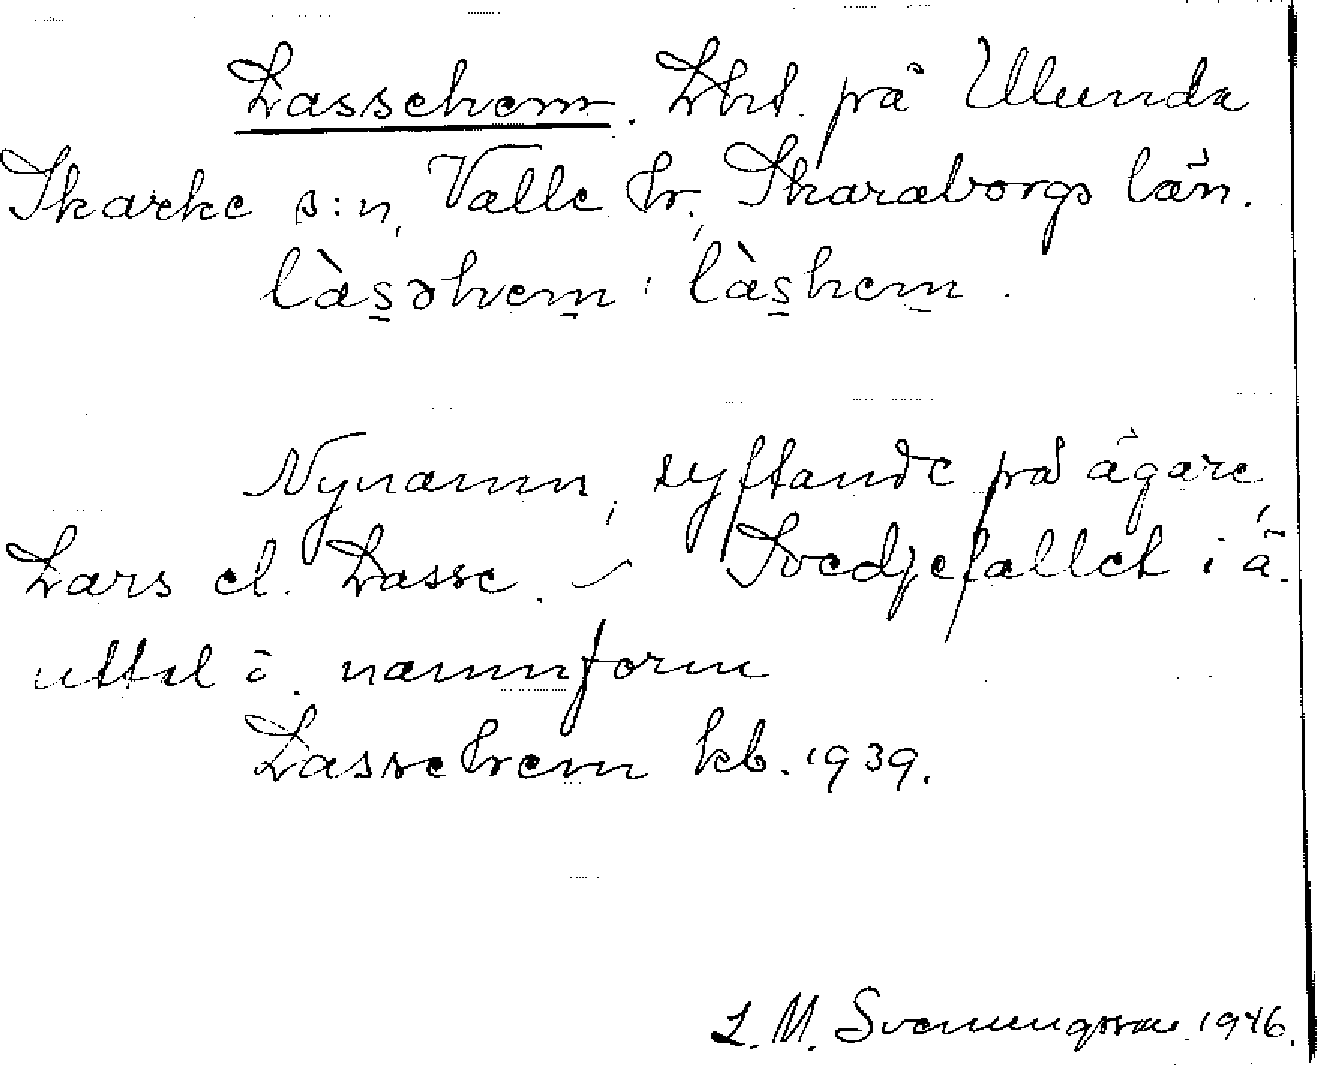 Lassehem. Lht. på Ulunda
Skarke s:n, Valle hr, Skaraborgs län.
làsəhem : làshem.
Nynamn, syftande på ägare,
Lars el. Lasse. ~ Svedjefallet i ä.
uttal o. namnform
Lassehem kb. 1939.
L. M. Svenungsson 1946.